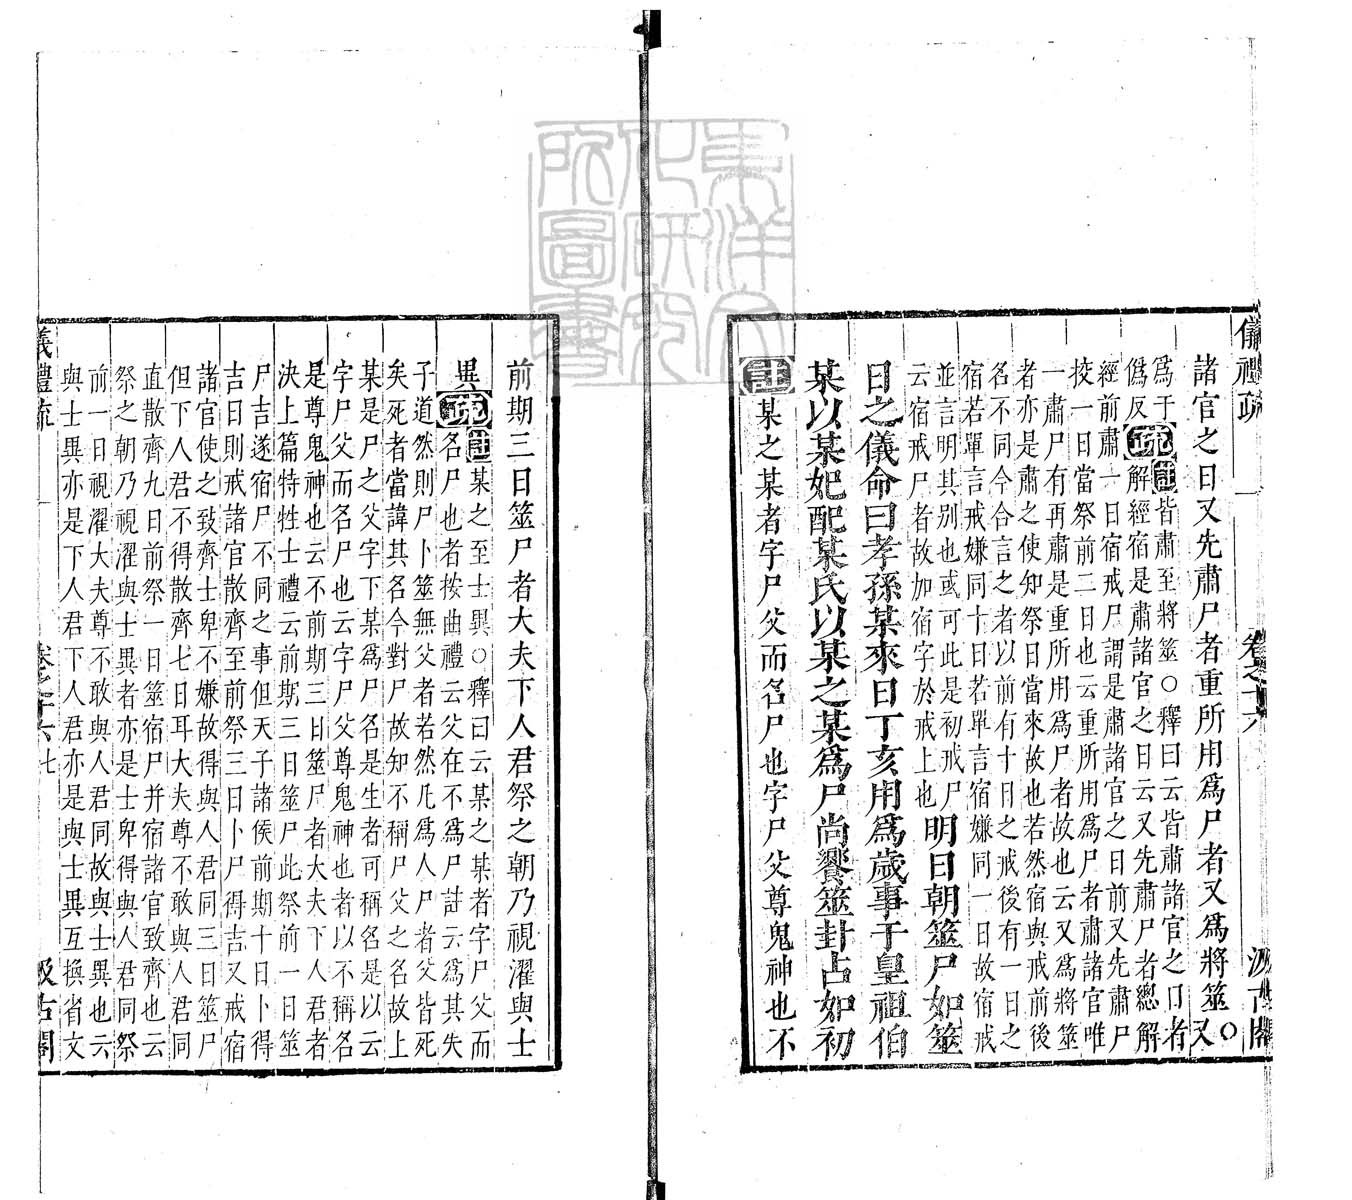 儀禮疏 卷之十六 汲古閣
諸官之日又先肅尸者重所用爲尸者又爲將筮○又
爲于
僞反
疏
註皆肅至將筮○釋曰云皆肅諸官之日者
解經宿是肅諸官之日云又先肅尸者總解
經前肅一日宿戒尸謂是肅諸官之日前又先肅尸
挍一日當祭前二日也云重所用爲尸者肅諸官唯
一肅尸有再肅是重所用爲尸者故也云又爲將筮
者亦是肅之使知祭日當來故也若然宿與戒前後
名不同今合言之者以前有十日之戒後有一日之
宿若單言戒嫌同十日若單言宿嫌同一日故宿戒
並言明其别也或可此是初戒尸
云宿戒尸者故加宿字於戒上也
明日朝筮尸如筮
日之儀命曰孝孫某來日丁亥用爲歲事于皇祖伯
某以某妃配某氏以某之某爲尸尚饗筮卦占如初
註某之某者字尸父而名尸也字尸父尊鬼神也不
前期三日筮尸者大夫下人君祭之朝乃視濯與士
異
疏
註某之至士異○釋曰云某之某者字尸父而
名尸也者按曲禮云父在不爲尸註云爲其失
子道然則尸卜筮無父者若然凡爲人尸者父皆死
矣死者當諱其名今對尸故知不稱尸父之名故上
某是尸之父字下某爲尸名是生者可稱名是以云
字尸父而名尸也云字尸父尊鬼神也者以不稱名
是尊鬼神也云不前期三日筮尸者大夫下人君者
決上篇特牲士禮云前期三日筮尸此祭前一日筮
尸吉遂宿尸不同之事但天子諸侯前期十日卜得
吉日則戒諸官散齊至前祭三日卜尸得吉又戒宿
諸官使之致齊士卑不嫌故得與人君同三日筮尸
但下人君不得散齊七日耳大夫尊不敢與人君同
直散齊九日前祭一日筮宿尸并宿諸官致齊也云
祭之朝乃視濯與士異者亦是士卑得與人君同祭
前一日視濯大夫尊不敢與人君同故與士異也云
與士異亦是下人君下人君亦是與士異互換省文
儀禮疏 卷之十六 七 汲古閣
東洋文化研究所圖書